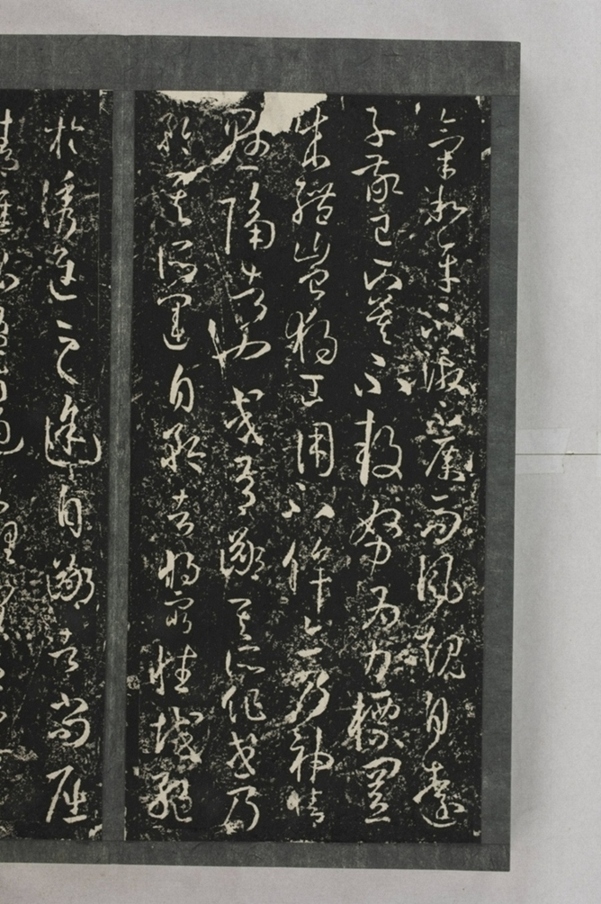 氣和平不激不厲而風規自遠
子敬已下莫不鼓努為力標置
成體豈獨工用不侔亦乃神情
懸隔者也或有鄙其所作或乃
矜其所運自矜者將窮性域絕
於誘進之途自鄙者尚屈